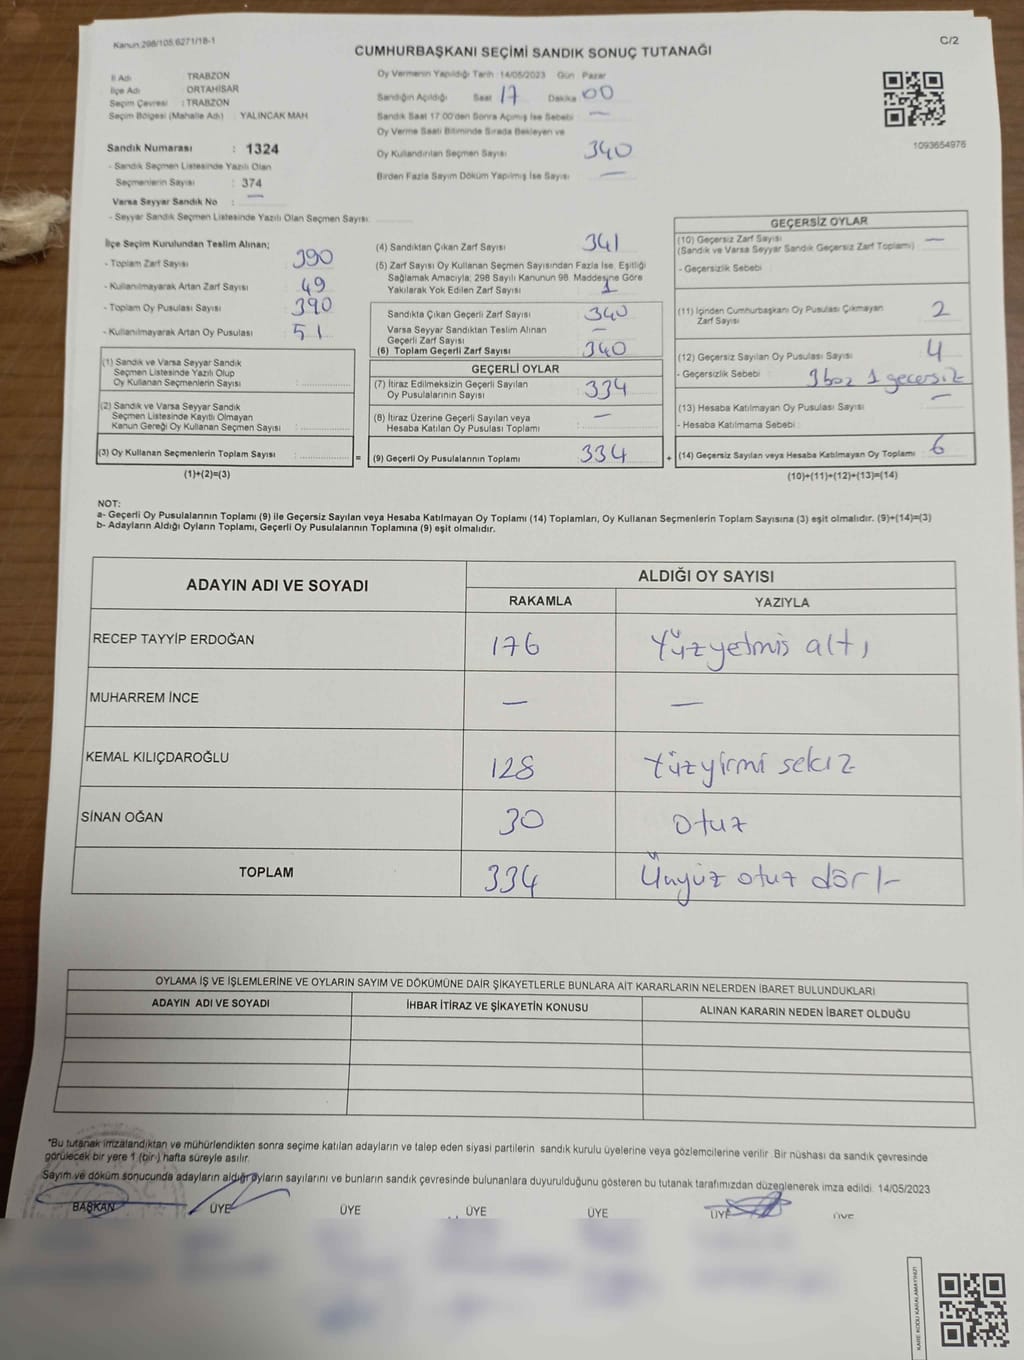 Kanun:298/105,6271/18-1
C/2
CUMHURBAŞKANI SEÇİMİ SANDIK SONUÇ TUTANAĞI
İl Adı : TRABZON
İlçe Adı : ORTAHİSAR
Seçim Çevresi : TRABZON
Seçim Bölgesi (Mahalle Adı) : YALINCAK MAH
Sandık Numarası : 1324
- Sandık Seçmen Listesinde Yazılı Olan
Seçmenlerin Sayısı : 374
Varsa Seyyar Sandık No : —
- Seyyar Sandık Seçmen Listesinde Yazılı Olan Seçmen Sayısı:
Oy Vermenin Yapıldığı Tarih : 14/05/2023 Gün : Pazar
Sandığın Açıldığı Saat 17 Dakika 00
Sandık Saat 17:00'den Sonra Açılmış İse Sebebi —
Oy Verme Saati Bitiminde Sırada Bekleyen ve
Oy Kullandırılan Seçmen Sayısı 340
Birden Fazla Sayım Döküm Yapılmış İse Sayısı —
1093654976
İlçe Seçim Kurulundan Teslim Alınan;
- Toplam Zarf Sayısı : 390
- Kullanılmayarak Artan Zarf Sayısı : 49
- Toplam Oy Pusulası Sayısı : 390
- Kullanılmayarak Artan Oy Pusulası : 51
(1) Sandık ve Varsa Seyyar Sandık
Seçmen Listesinde Yazılı Olup
Oy Kullanan Seçmenlerin Sayısı :
(2) Sandık ve Varsa Seyyar Sandık
Seçmen Listesinde Kayıtlı Olmayan
Kanun Gereği Oy Kullanan Seçmen Sayısı :
(3) Oy Kullanan Seçmenlerin Toplam Sayısı :
(1)+(2)=(3)
=
(4) Sandıktan Çıkan Zarf Sayısı : 341
(5) Zarf Sayısı Oy Kullanan Seçmen Sayısından Fazla İse, Eşitliği
Sağlamak Amacıyla; 298 Sayılı Kanunun 98. Maddesine Göre
Yakılarak Yok Edilen Zarf Sayısı : 1
Sandıkta Çıkan Geçerli Zarf Sayısı : 340
Varsa Seyyar Sandıktan Teslim Alınan
Geçerli Zarf Sayısı : —
(6) Toplam Geçerli Zarf Sayısı : 340
GEÇERLİ OYLAR
(7) İtiraz Edilmeksizin Geçerli Sayılan
Oy Pusulalarının Sayısı : 334
(8) İtiraz Üzerine Geçerli Sayılan veya
Hesaba Katılan Oy Pusulası Toplamı : —
(9) Geçerli Oy Pusulalarının Toplamı : 334
+
GEÇERSİZ OYLAR
(10) Geçersiz Zarf Sayısı : —
(Sandık ve Varsa Seyyar Sandık Geçersiz Zarf Toplamı)
- Geçersizlik Sebebi :
(11) İçinden Cumhurbaşkanı Oy Pusulası Çıkmayan
Zarf Sayısı : 2
(12) Geçersiz Sayılan Oy Pusulası Sayısı : 4
- Geçersizlik Sebebi : 3 boş 1 geçersiz
(13) Hesaba Katılmayan Oy Pusulası Sayısı : —
- Hesaba Katılmama Sebebi :
(14) Geçersiz Sayılan veya Hesaba Katılmayan Oy Toplamı : 6
(10)+(11)+(12)+(13)=(14)
NOT:
a- Geçerli Oy Pusulalarının Toplamı (9) ile Geçersiz Sayılan veya Hesaba Katılmayan Oy Toplamı (14) Toplamları, Oy Kullanan Seçmenlerin Toplam Sayısına (3) eşit olmalıdır. (9)+(14)=(3)
b- Adayların Aldığı Oyların Toplamı, Geçerli Oy Pusulalarının Toplamına (9) eşit olmalıdır.
ADAYIN ADI VE SOYADI
ALDIĞI OY SAYISI
RAKAMLA YAZIYLA
RECEP TAYYİP ERDOĞAN 176 Yüzyetmiş altı
MUHARREM İNCE — —
KEMAL KILIÇDAROĞLU 128 Yüzyirmi sekiz
SİNAN OĞAN 30 Otuz
TOPLAM 334 Üçyüz otuz dört
OYLAMA İŞ VE İŞLEMLERİNE VE OYLARIN SAYIM VE DÖKÜMÜNE DAİR ŞİKAYETLERLE BUNLARA AİT KARARLARIN NELERDEN İBARET BULUNDUKLARI
ADAYIN ADI VE SOYADI İHBAR İTİRAZ VE ŞİKAYETİN KONUSU ALINAN KARARIN NEDEN İBARET OLDUĞU
*Bu tutanak imzalandıktan ve mühürlendikten sonra seçime katılan adayların ve talep eden siyasi partilerin sandık kurulu üyelerine veya gözlemcilerine verilir. Bir nüshası da sandık çevresinde
görülecek bir yere 1 (bir) hafta süreyle asılır.
Sayım ve döküm sonucunda adayların aldığı oyların sayılarını ve bunların sandık çevresinde bulunanlara duyurulduğunu gösteren bu tutanak tarafımızdan düzenlenerek imza edildi. 14/05/2023
BAŞKAN ÜYE ÜYE ÜYE ÜYE ÜYE ÜYE
KARE KODU KARALAMAYINIZ!